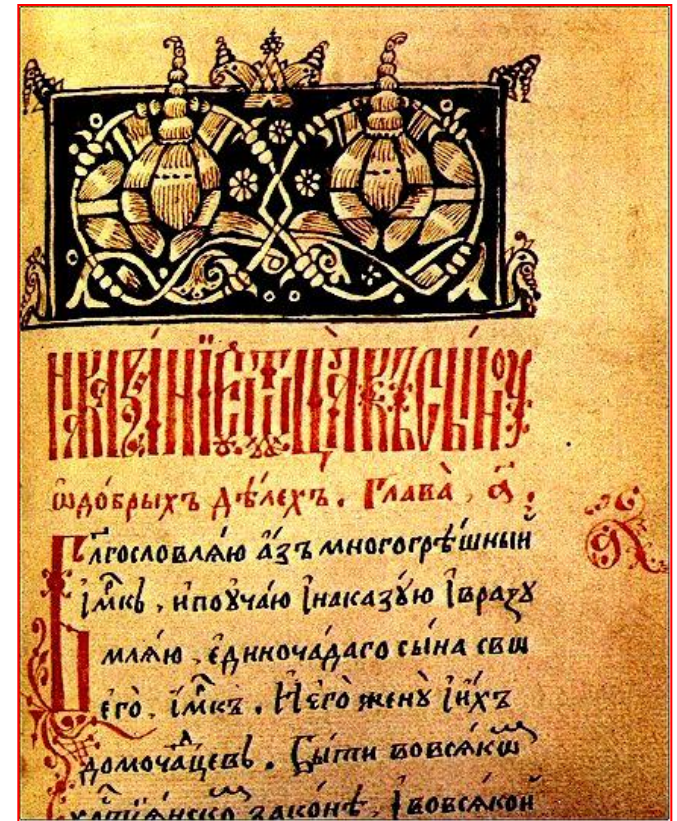 Наказанїе ѿ ѿца къ сынꙋ
ѡ добрыхъ дѣлехъ. Глава̀, а҃.
Блгословлѧ́ю а́зъ многогрѣ́шный
і҆́мкъ, и поꙋча́ю і҆ наказꙋ́ю і҆ вразꙋ
млѧ́ю є҆диноча́даго сы́на сво
его̀, і҆́мкъ. И҆ его̀ женꙋ̀ і҆ и҆́хъ
домоча́дцевъ. Бы́ти во всѧко
законѣ, і҆ во всѧкой